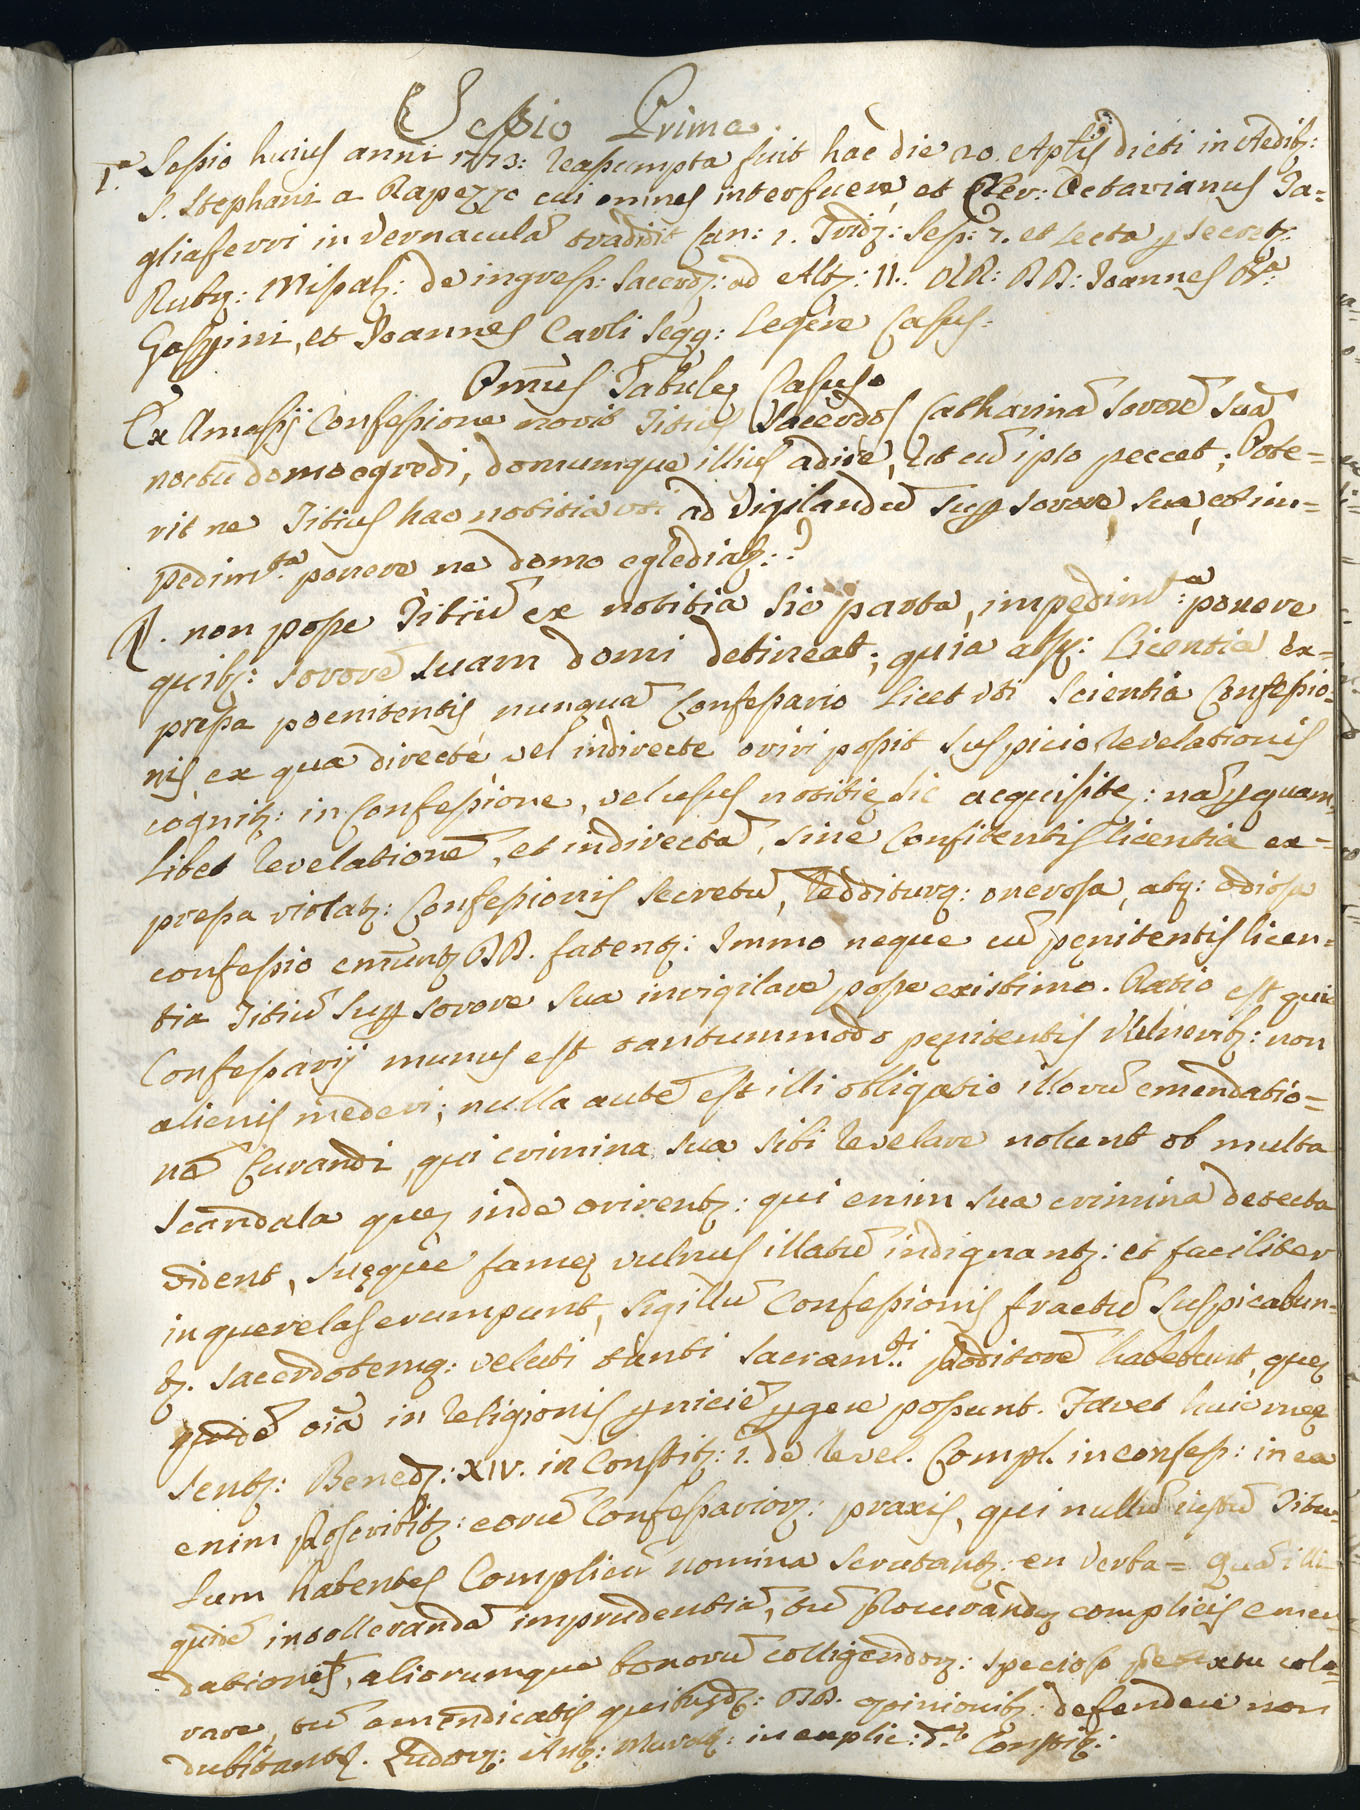 Sessio Prima.
1.ª Sessio huius anni 1773: reassumpta fuit hac die 20 Aplis dicti in Aedibꝫ:
S. Stephani a Rapezzo cui omnes interfuere, et Rev: Octavianus Ta=
gliaferri in vernaculã tradidit Can: 1. Tridꝫ: Sess: 7. et lecta ꝑ secretꝫ:
Rubꝫ: Missalꝫ: de ingress: Sacerdꝫ: ad Altꝫ: 11.. RR: DD: Ioannes Bꝫª
Gaspini, et Ioannes Carli segg: legere Casus:
Primus Tabulę Casus.
Ex Amasij Confessione novit Titius Sacerdos Catharinã sororẽ suã
noctu domo egredi, domumque illius adire, ut cũ ipso peccet; Pote=
rit ne Titius hac notitia uti ad vigilandũ suꝑ sorore sua, et im=
pedimᵗᵃ ponere ne domo egrediatꝫ:?
R. non posse Titiũ ex notitia sic parta, impedimᵗᵃ ponere
quibꝫ: sororẽ suam domi detineat; quia absqꝫ: licentia ex=
pressa poenitentis nunquã Confessario licet uti scientia Confessio=
nis, ex qua directè vel indirecte oriri possit suspicio revelationis
cognitꝫ: in Confessione, vel usus notitię sic acquisitę: nã ꝑ quam=
libet revelationẽ, et indirectã, sine Confitentis licentia ex=
pressa violatꝫ: Confessionis secretũ, redditurqꝫ: onerosa, atqꝫ: odiosa
confessio cmũntꝫ DD. fatentꝫ: Immo neque cũ pęnitentis licen=
tia Titiũ suꝑ sorore sua invigilare posse existimo. Ratio est quia
Confessarij munus est tantummodo pęnitentis vulneribꝫ: non
alienis mederi; nulla autẽ est illi obligatio illorũ emendatio=
nẽ curandi, qui crimina sua sibi revelare nolunt ob multa
scandala quę inde orirentꝫ: qui enim sua crimina detecta
vident, suęque famę vulnus illatũ indignantꝫ: et faciliter
in querelas erumpunt, sigillũ Confessionis fractũ suspicabun=
tꝫ. Sacerdotemqꝫ: veluti tanti sacramᵗⁱ proditorẽ habebunt, quę
quidẽ oĩa in religionis ꝑniciẽ ꝑgere possunt. Favet huic meę
sentꝫ: Benedꝫ: XIV. in Constitꝫ: 1. de revel. Compl. in confess: in ea
enim proscribitꝫ: eorũ Confessariorꝫ: praxis, qui nullũ iustũ titu=
lum habentes Complicũ nomina scrutantꝫ: en verba= Quã illi
quidẽ intollerandã imprudentiã, tũ procurandę complicis emen=
dationis, aliorumque bonorũ colligendorꝫ: specioso pretextu colo=
rare, tũ emendicatis quibusdꝫ: DD. opinionibꝫ: defendere non
dubitantꝫ. Ludovꝫ: Antꝫ: Muratꝫ: in explic: dᵉ Constitꝫ: